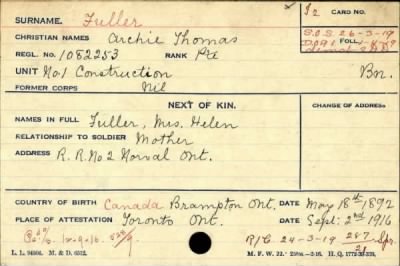 SURNAME. Fuller
I2 CARD NO.
CHRISTIAN NAMES Archie Thomas
S.O.S. 26-3-19
FOLL.
REGL. NO. 1082253 RANK Pte
UNIT No. 1 Construction Bn.
FORMER CORPS Nil
NEXT OF KIN.
CHANGE OF ADDRESS
NAMES IN FULL Fuller, Mrs. Helen
RELATIONSHIP TO SOLDIER Mother
ADDRESS R.R. No 2 Norval Ont.
COUNTRY OF BIRTH Canada Brampton Ont. DATE May 18th 1892
PLACE OF ATTESTATION Toronto Ont. DATE Sept: 2nd 1916
R/C. 24-3-19 287/21 Spr.
L. L. 94506. M. & D. 6512. M. F. W. 22.